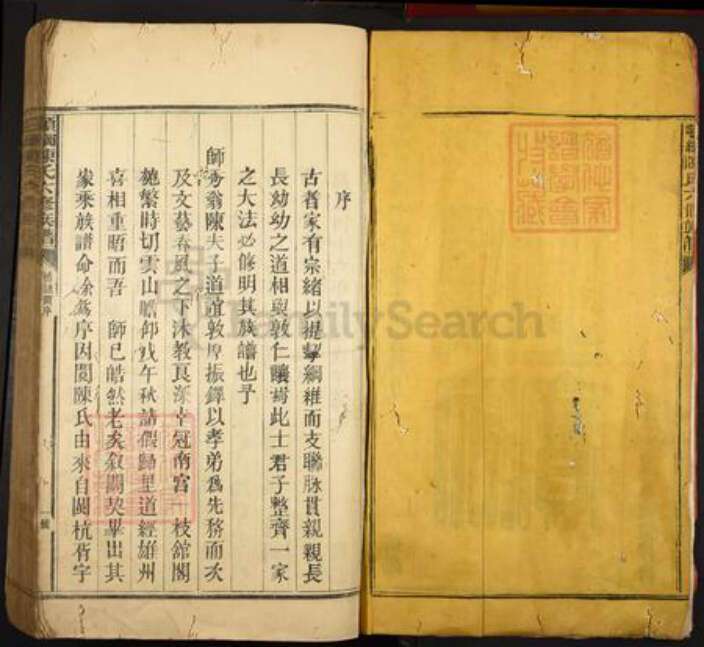 序
古者家有宗緒以提挈綱維而支聯脉貫親親長
長幼幼之道相與敦仁讓焉此士君子整齊一家
之大法必修明其族譜也予
師秀翁陳夫子道誼敦厚振鐸以孝弟為先務而次
及文藝春風之下沐教良深幸冠南宮一枝舘閣
繁時切雲山瞻仰戊午秋請假歸里道經雄州
喜相重晤而吾 師已皓然老矣叙濶契畢出其
家乘族譜命余為序因閱陳氏由來自閩杭胥字
陳氏六修族譜
序
FamilySearch